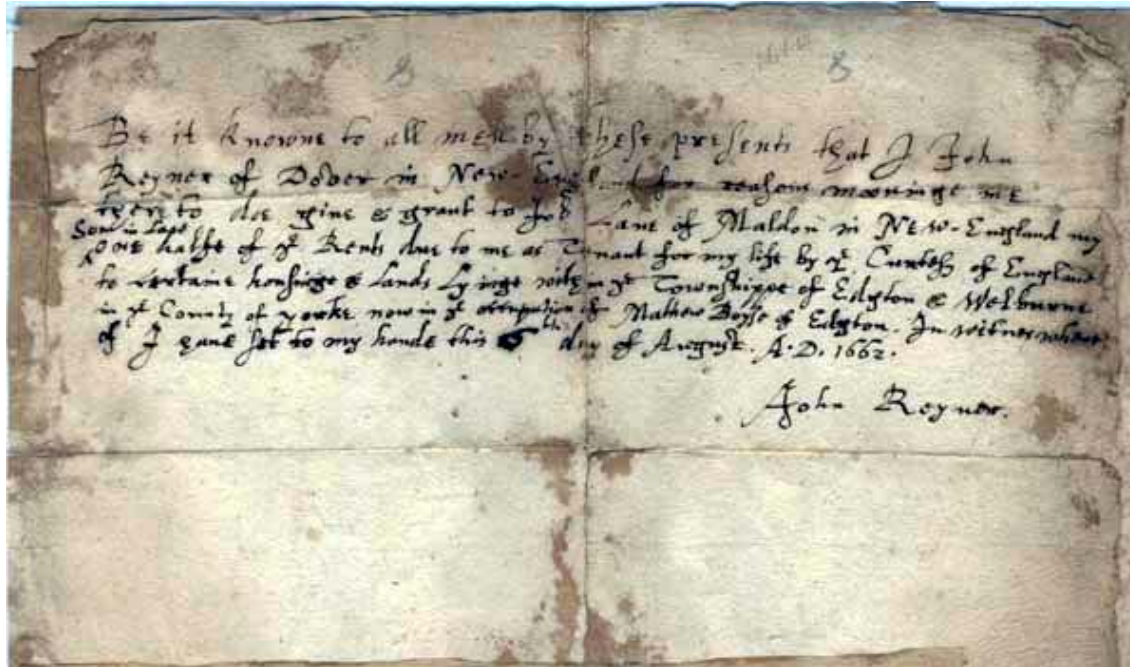 8 8
Be it knowne to all men by these presents that I John
Reyner of Dover in New-England for reasons mooninge me
there to doe giue & grant to Job Lane of Maldon in New-England my
Sonn in Law
^ one halfe of ye Rents due to me as Tenant for my life by ye Curtesy of England
to certaine housinge & Lands Lyinge within ye Townshippe of Edgton & Welburne
in ye County of yorke now in ye occupation of Mathew Boyse of Edgton. In witnes where
of I haue set to my hande this 6th day of August. A.D. 1662.
John Reyner.